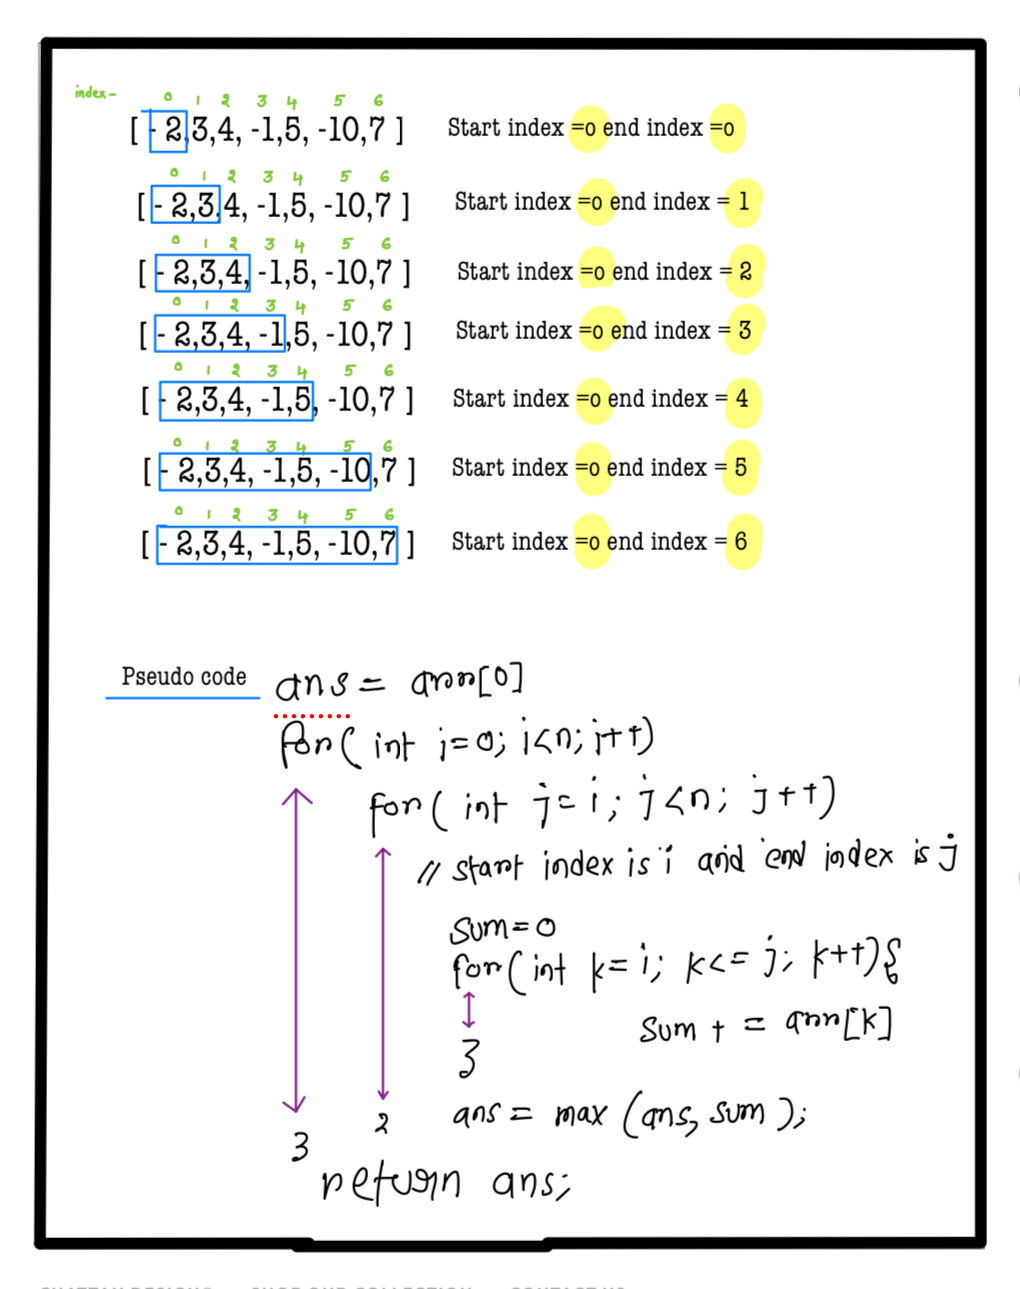 index -
0 1 2 3 4 5 6
[ - 2,3,4, -1,5, -10,7 ] Start index =0 end index =0
0 1 2 3 4 5 6
[ - 2,3,4, -1,5, -10,7 ] Start index =0 end index = 1
0 1 2 3 4 5 6
[ - 2,3,4, -1,5, -10,7 ] Start index =0 end index = 2
0 1 2 3 4 5 6
[ - 2,3,4, -1,5, -10,7 ] Start index =0 end index = 3
0 1 2 3 4 5 6
[ - 2,3,4, -1,5, -10,7 ] Start index =0 end index = 4
0 1 2 3 4 5 6
[ - 2,3,4, -1,5, -10,7 ] Start index =0 end index = 5
0 1 2 3 4 5 6
[ - 2,3,4, -1,5, -10,7 ] Start index =0 end index = 6
Pseudo code ans = arr[0]
for( int i=0; i<n; i++)
for( int j= i; j<n; j++)
// start index is i and end index is j
sum=0
for(int k= i; k<= j; k++){
sum + = arr[k]
}
ans = max (ans, sum );
}
}
return ans;